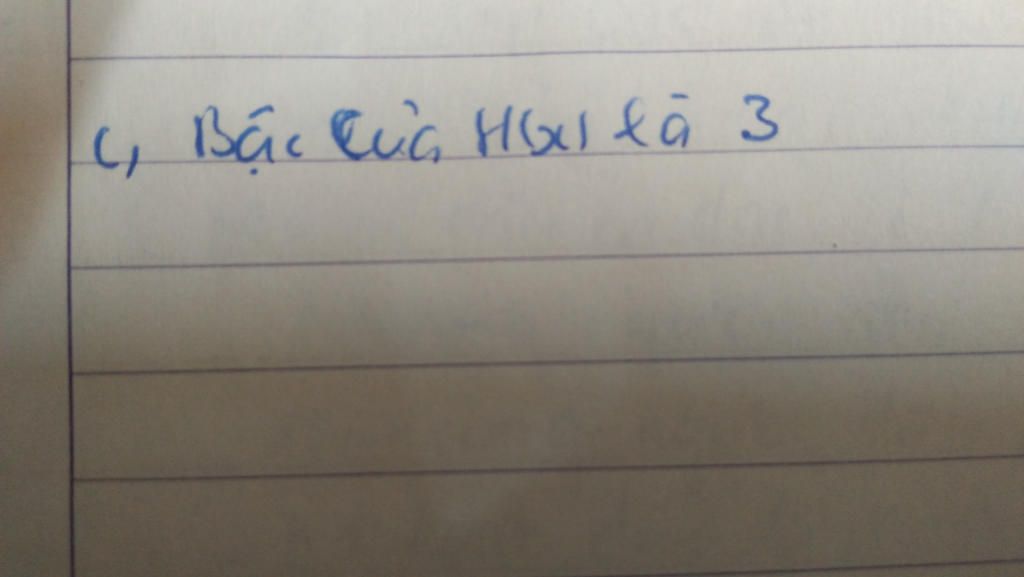 c, Bậc của H(x) là 3